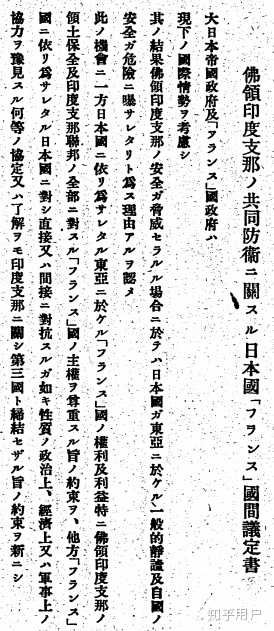 佛領印度支那ノ共同防衞ニ關スル日本國「フランス」國間議定書
大日本帝國政府及「フランス」國政府ハ
現下ノ國際情勢ヲ考慮シ
其ノ結果佛領印度支那ノ安全ガ脅威セラルル場合ニ於テハ日本國ガ東亞ニ於ケル一般的靜謐及自國ノ
安全ガ危險ニ曝サレタリト爲ス理由アルヲ認メ
此ノ機會ニ一方日本國ニ依リ爲サレタル東亞ニ於ケル「フランス」國ノ權利及利益特ニ佛領印度支那ノ
領土保全及印度支那聯邦ノ全部ニ對スル「フランス」國ノ主權ヲ尊重スル旨ノ約束ヲ、他方「フランス」
國ニ依リ爲サレタル日本國ニ對シ直接又ハ間接ニ對抗スルガ如キ性質ノ政治上、經濟上又ハ軍事上ノ
協力ヲ豫見スル何等ノ協定又ハ了解ヲモ印度支那ニ關シ第三國ト締結セザル旨ノ約束ヲ新ニシ
知乎用户